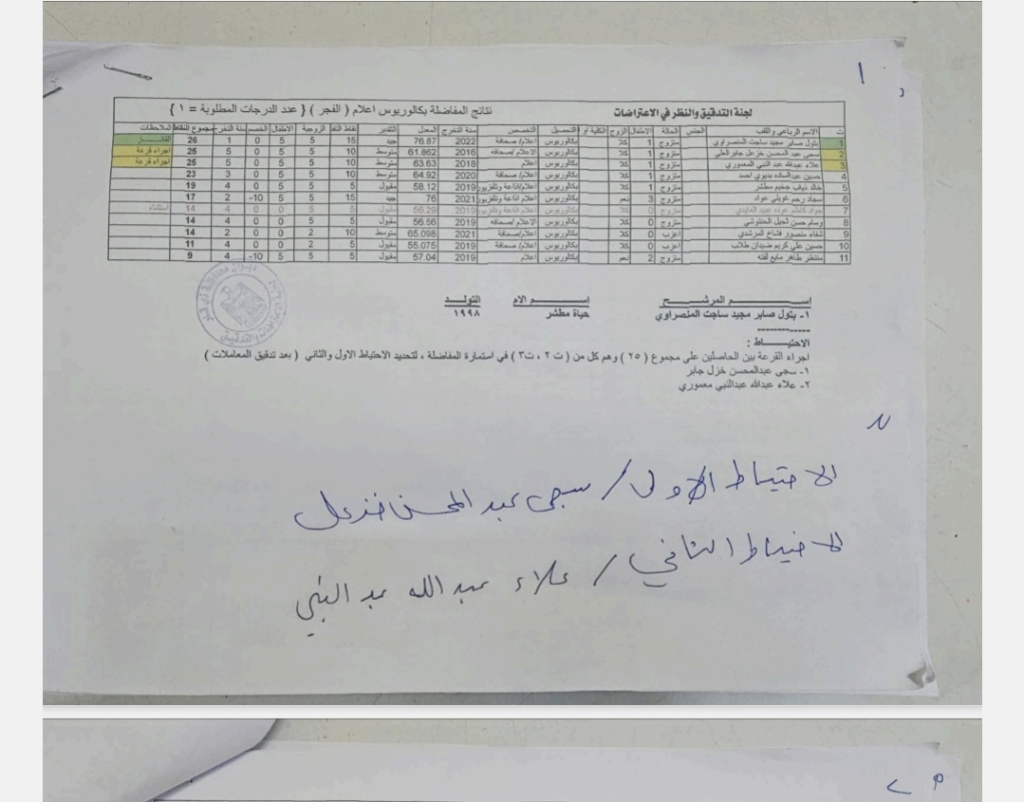 لجنة التدقيق والنظر في الاعتراضات نتائج المفاضلة بكالوريوس اعلام ( الفجر ) { عدد الدرجات المطلوبة = ١ }
ت الاسم الرباعي واللقب الجنس الحالة الاطفال الزوج الكلية او التحصيل التخصص سنة التخرج المعدل التقدير نقاط التق الزوجية الاطفال الخصم سنة التخرج مجموع النقاط الملاحظات
1 بتول صابر مجيد ساجت المنصراوي متزوج 1 كلا بكالوريوس اعلام/ صحافة 2022 76.87 جيد 15 5 5 0 1 26
2 سجى عبد المحسن خزعل جابر العلي متزوج 1 كلا بكالوريوس الاعلام/صحافه 2016 61.862 متوسط 10 5 5 0 5 25 اجراء قرعة
3 علاء عبدالله عبد النبي المعموري متزوج 1 كلا بكالوريوس اعلام 2018 63.63 متوسط 10 5 5 0 5 25 اجراء قرعة
4 حسين عبدالساده بديوي احمد متزوج 1 كلا بكالوريوس اعلام/ صحافة 2020 64.92 متوسط 10 5 5 0 3 23
5 خالد ذياب مطشر متزوج 1 كلا بكالوريوس اعلام/اذاعة وتلفزيون 2019 58.12 مقبول 5 5 5 0 4 19
6 سجاد رحم عواد متزوج 3 نعم بكالوريوس اعلام اذاعة وتلفزيون 2021 76 جيد 15 5 5 -10 2 17
7 جواد كاظم عوده عبيد العابدي متزوج 0 كلا بكالوريوس اعلام اذاعة وتلفزيون 2019 56.29 مقبول 5 5 0 0 4 14 استثناء
8 وسام حسن متزوج 0 كلا بكالوريوس الاعلام/صحافه 2019 56.56 مقبول 5 5 0 0 4 14
9 شفاء منصور المرشدي اعزب 0 كلا بكالوريوس اعلام/ صحافة 2021 65.098 متوسط 10 2 0 0 2 14
10 حسين علي كريم ضيدان طلاب اعزب 0 كلا بكالوريوس اعلام/ صحافة 2019 55.075 مقبول 5 2 0 0 4 11
11 منتظر طاهر مايع لفته متزوج 2 نعم بكالوريوس اعلام 2019 57.04 مقبول 5 5 5 -10 4 9
اســـم المرشـــح اســـم الام التولـــد
١- بتول صابر مجيد ساجت المنصراوي حياة مطشر ١٩٩٨
الاحتيـــاط :
اجراء القرعة بين الحاصلين على مجموع ( ٢٥ ) وهم كل من ( ت ٢ ، ت٣ ) في استمارة المفاضلة ، لتحديد الاحتياط الاول والثاني ( بعد تدقيق المعاملات )
١- سجى عبدالمحسن خزل جابر
٢- علاء عبدالله عبدالنبي معموري
الاحتياط الاولى / سجى عبد المحسن خزعل
الاحتياط الثاني / علاء عبدالله عبد النبي